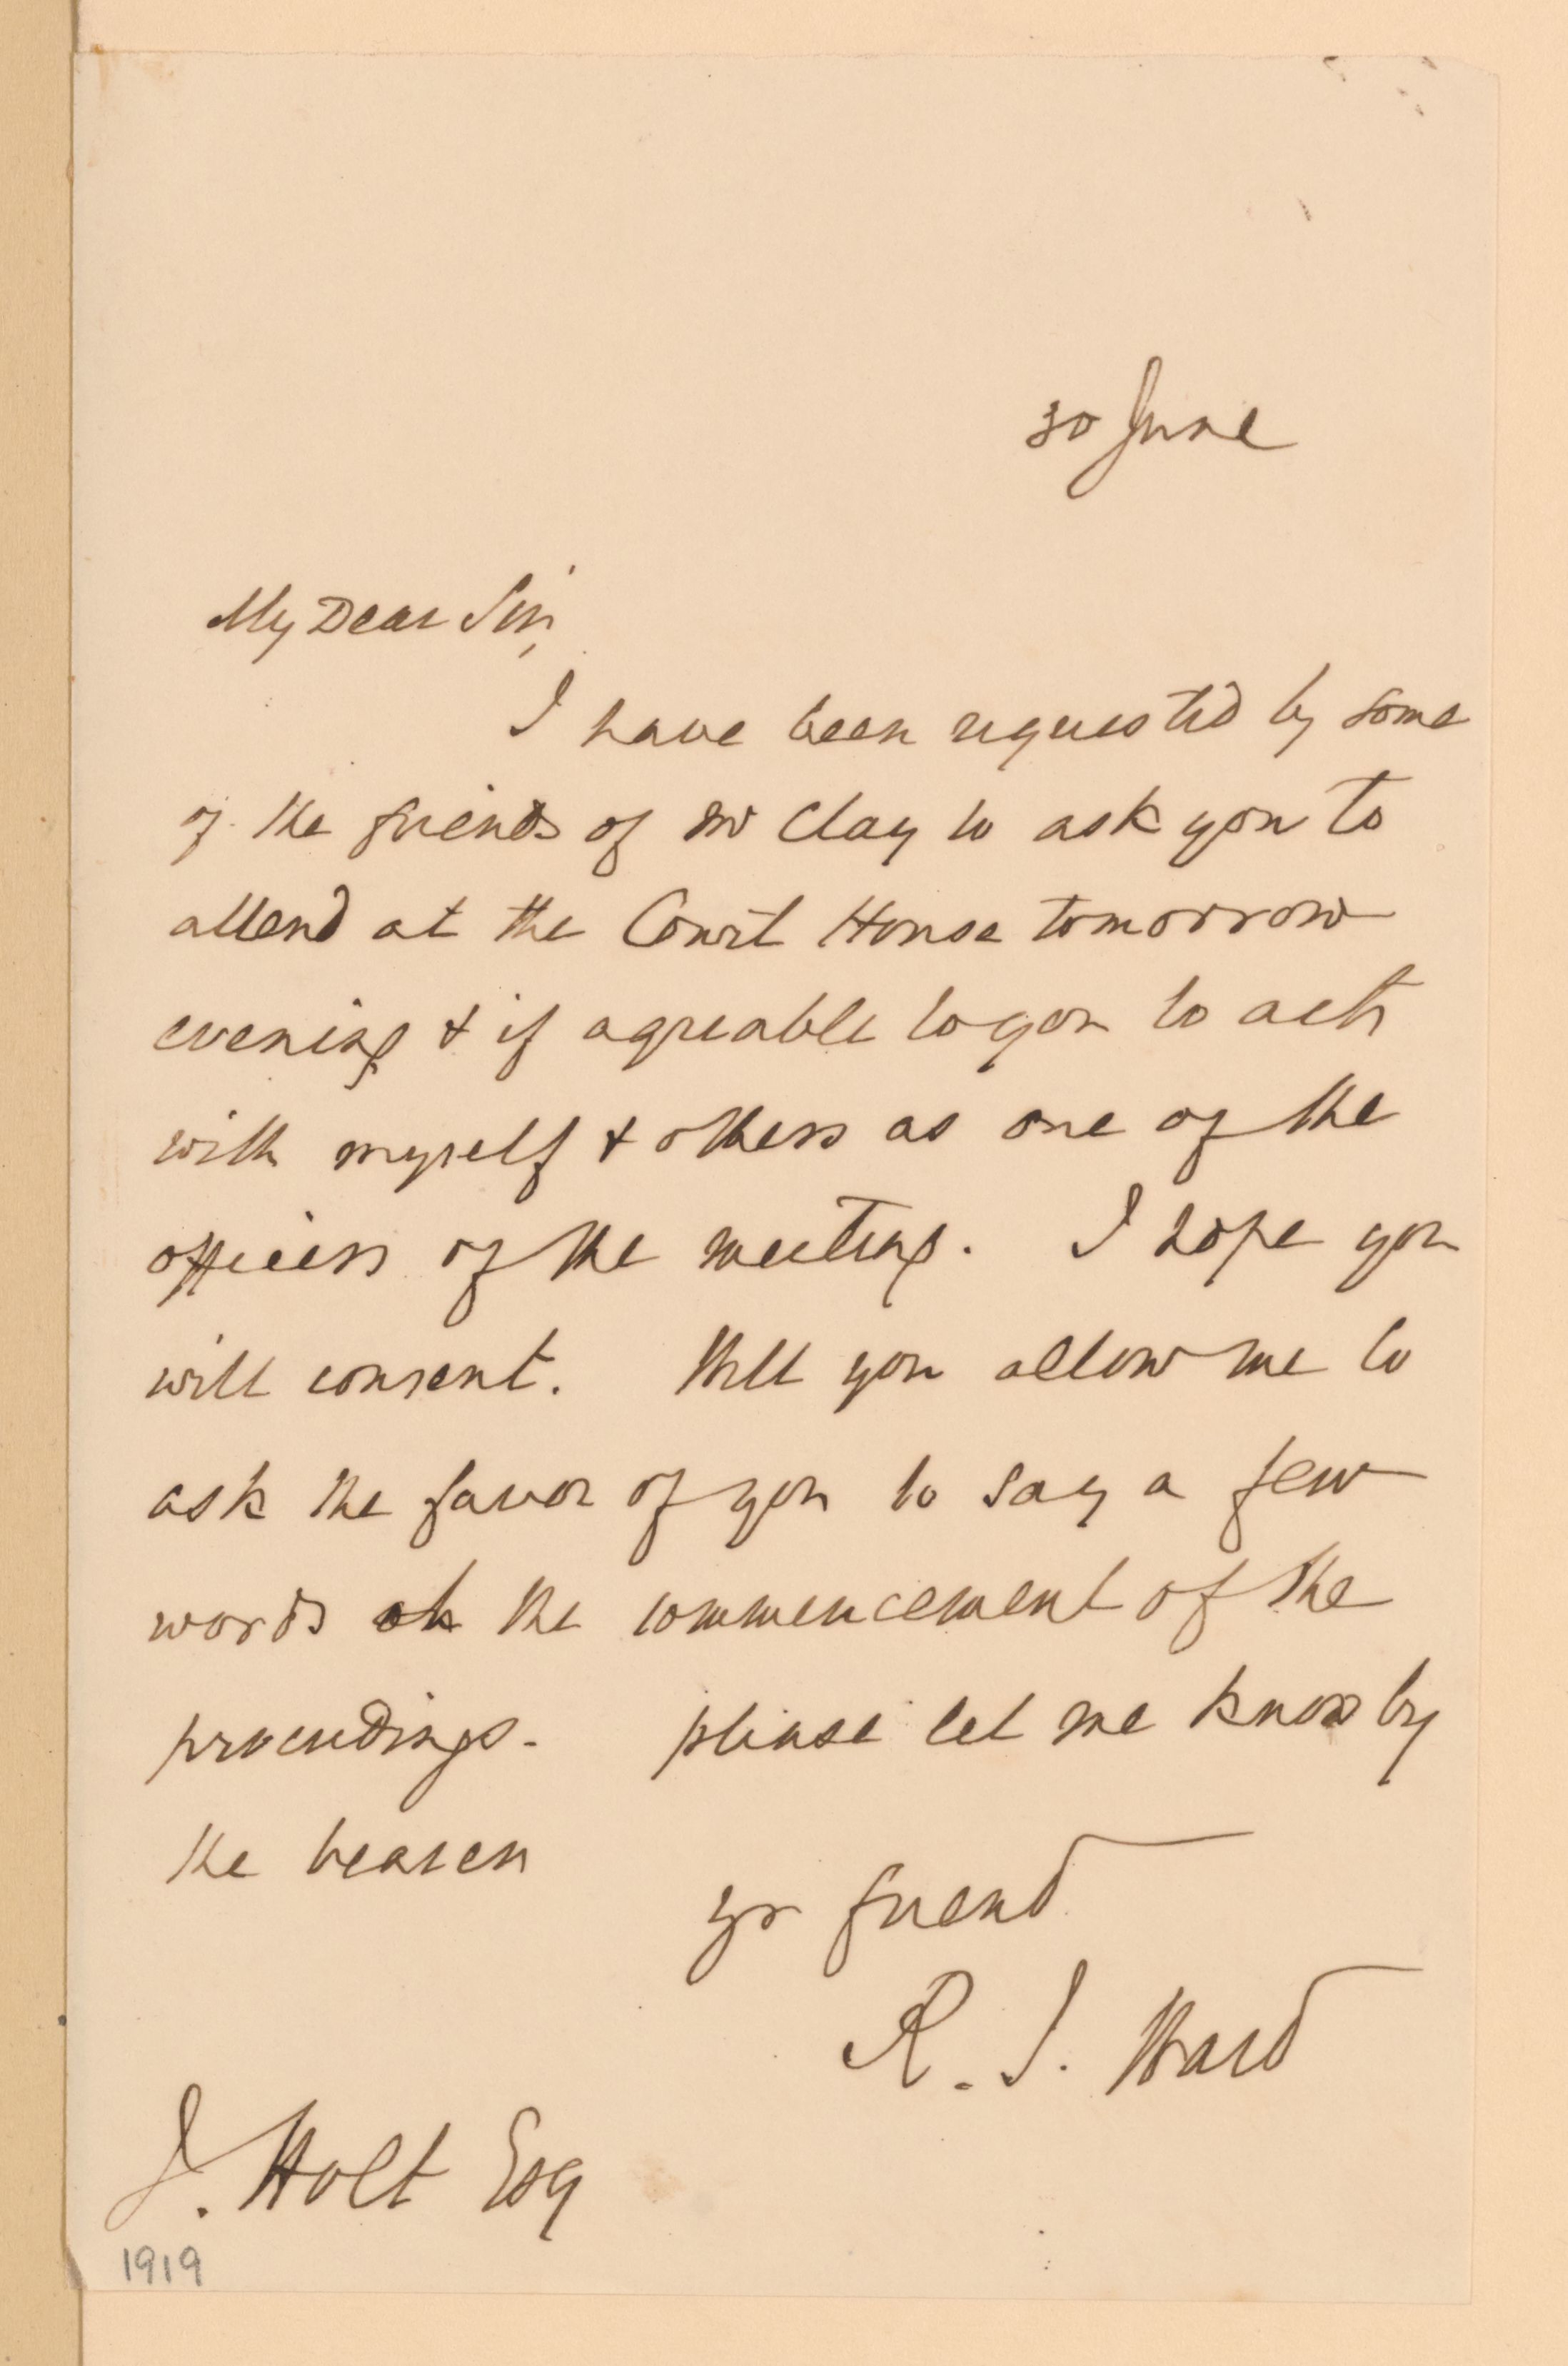 30 June
My Dear Sir,
I have been requested by some
of the friends of Mr Clay to ask you to
attend at the Court House tomorrow
evening & if agreable to you to act
with myself & others as one of the
officers of the meeting. I hope you
will consent. Will you allow me to
ask the favor of you to say a few
words at the commencement of the
proceedings. please let me know by
the bearer
yr friend
R. J. Ward
J. Holt Esq
1919